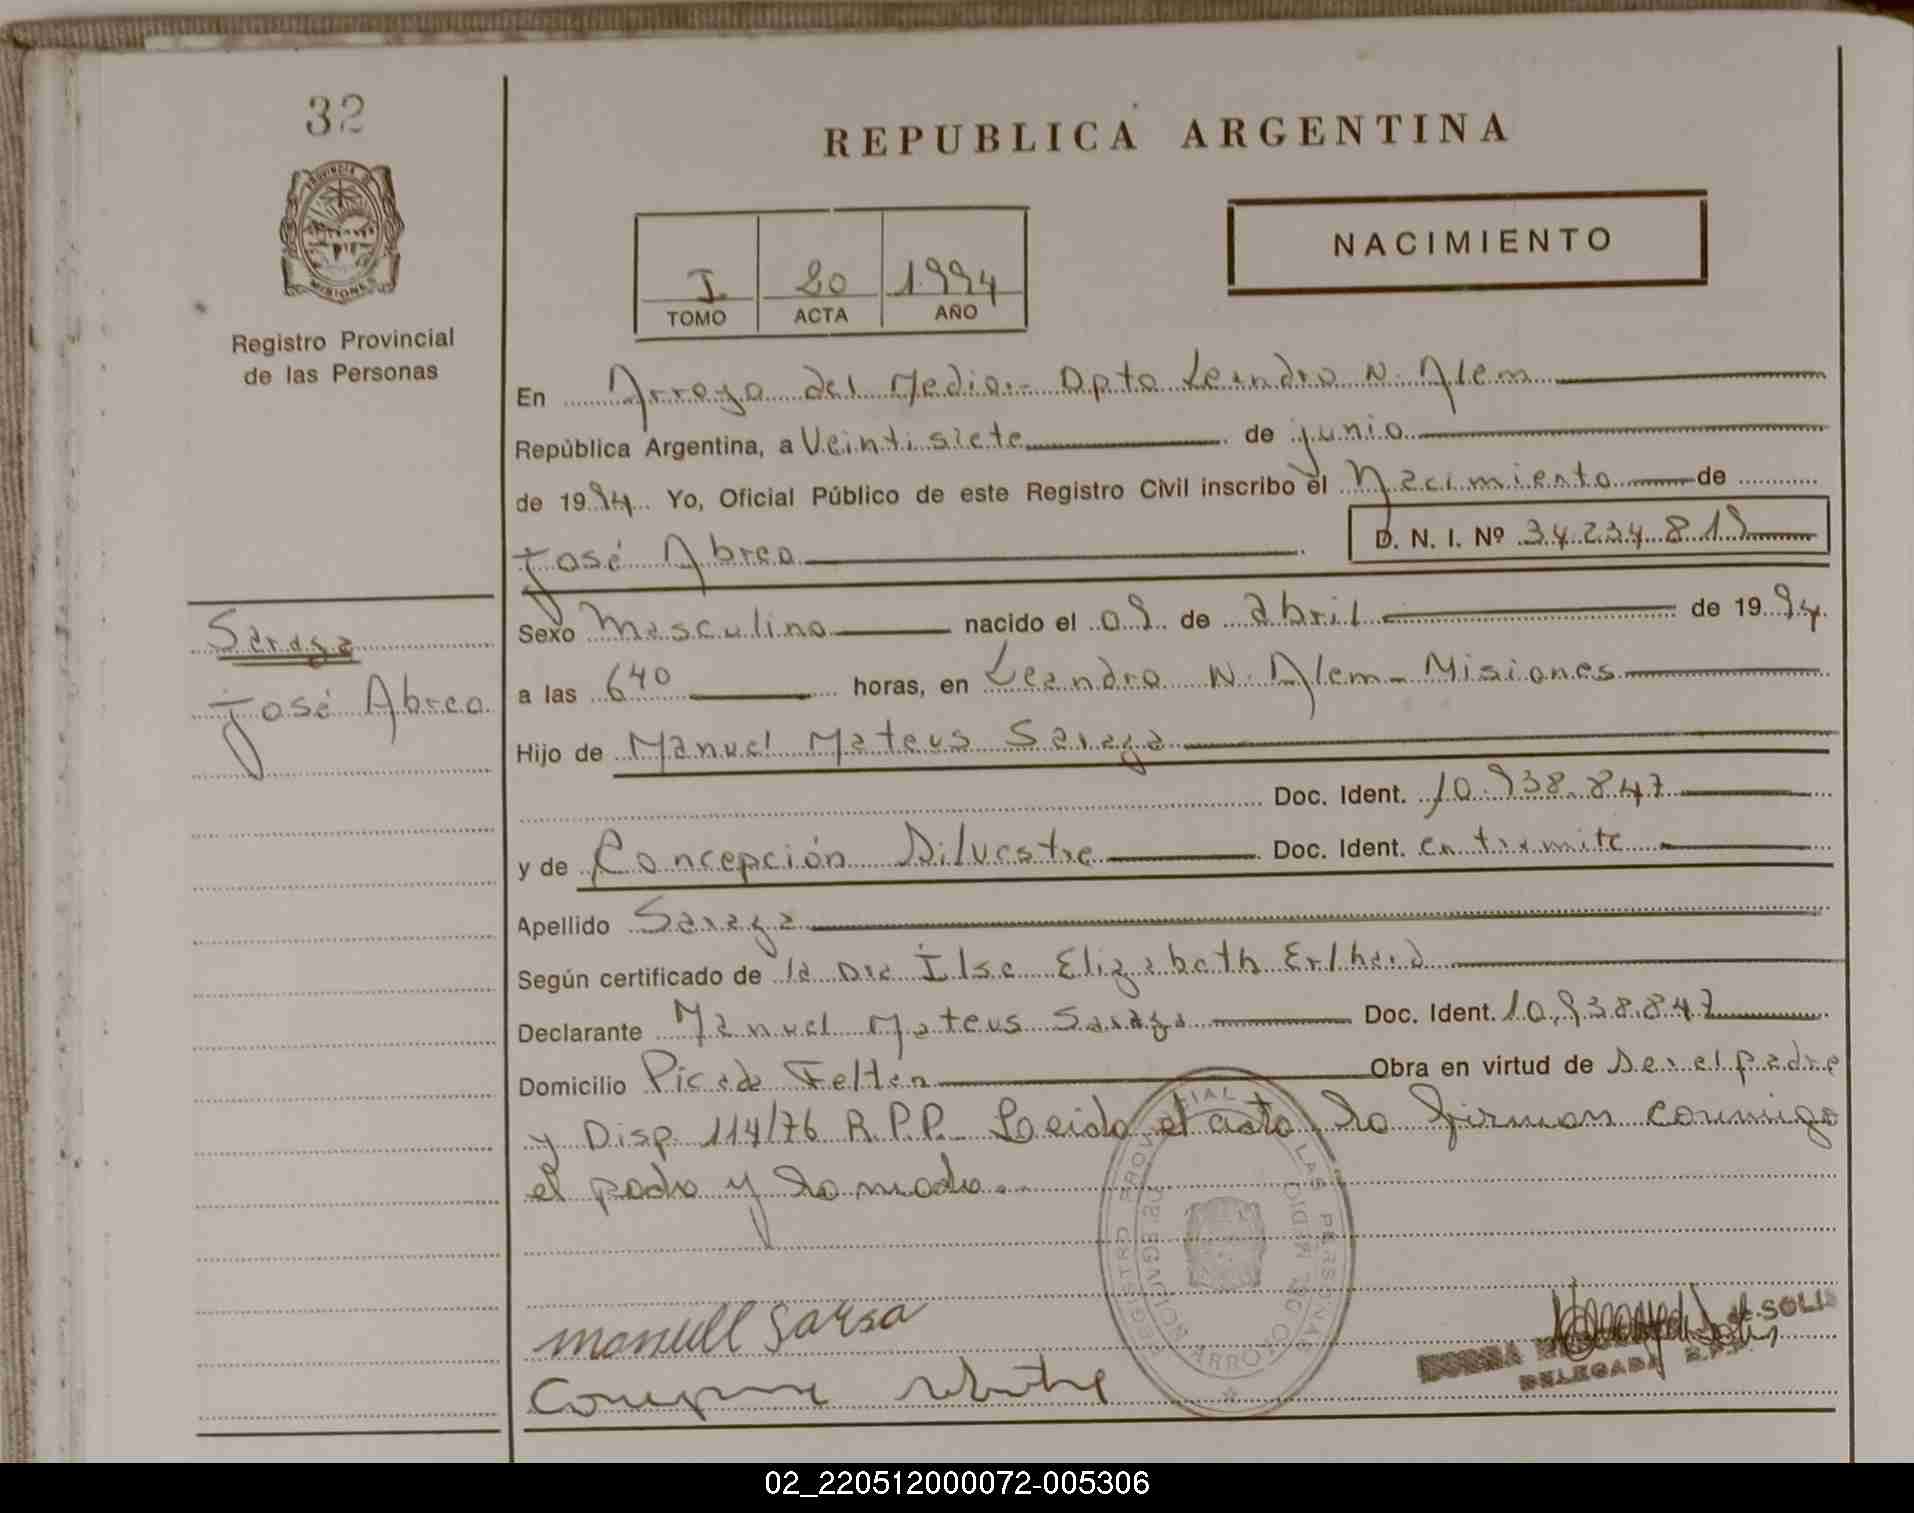 32
PROVINCIA DE
MISIONES
Registro Provincial
de las Personas
REPUBLICA ARGENTINA
NACIMIENTO
I 20 1994
TOMO ACTA AÑO
En Arroyo del Medio.- Dpto Leandro N. Alem
República Argentina, a Veintisiete de junio
de 1994 Yo, Oficial Público de este Registro Civil inscribo el Nacimiento de
José Abreo D. N. I. Nº 34.234.819
Saraga
José Abreo
Sexo Masculino nacido el 09 de abril de 1994
a las 640 horas, en Leandro N. Alem - Misiones
Hijo de Manuel Mateus Saraga
Doc. Ident. 10.938.847
y de Concepción Silvestre Doc. Ident. en tramite
Apellido Saraga
Según certificado de la Dra Ilse Elizabeth Erlhard
Declarante Manuel Mateus Saraga Doc. Ident. 10.938.847
Domicilio Picada Felten Obra en virtud de ser el padre
y Disp. 114/76 R.P.P. Leida el acta la firman conmigo
el padre y la madre.-
REGISTRO PROVINCIAL LAS PERSONAS
ARROYO DEL MEDIO
manuell Sarsa
de SOLIS
DELEGADA R.P.P.
02_220512000072-005306